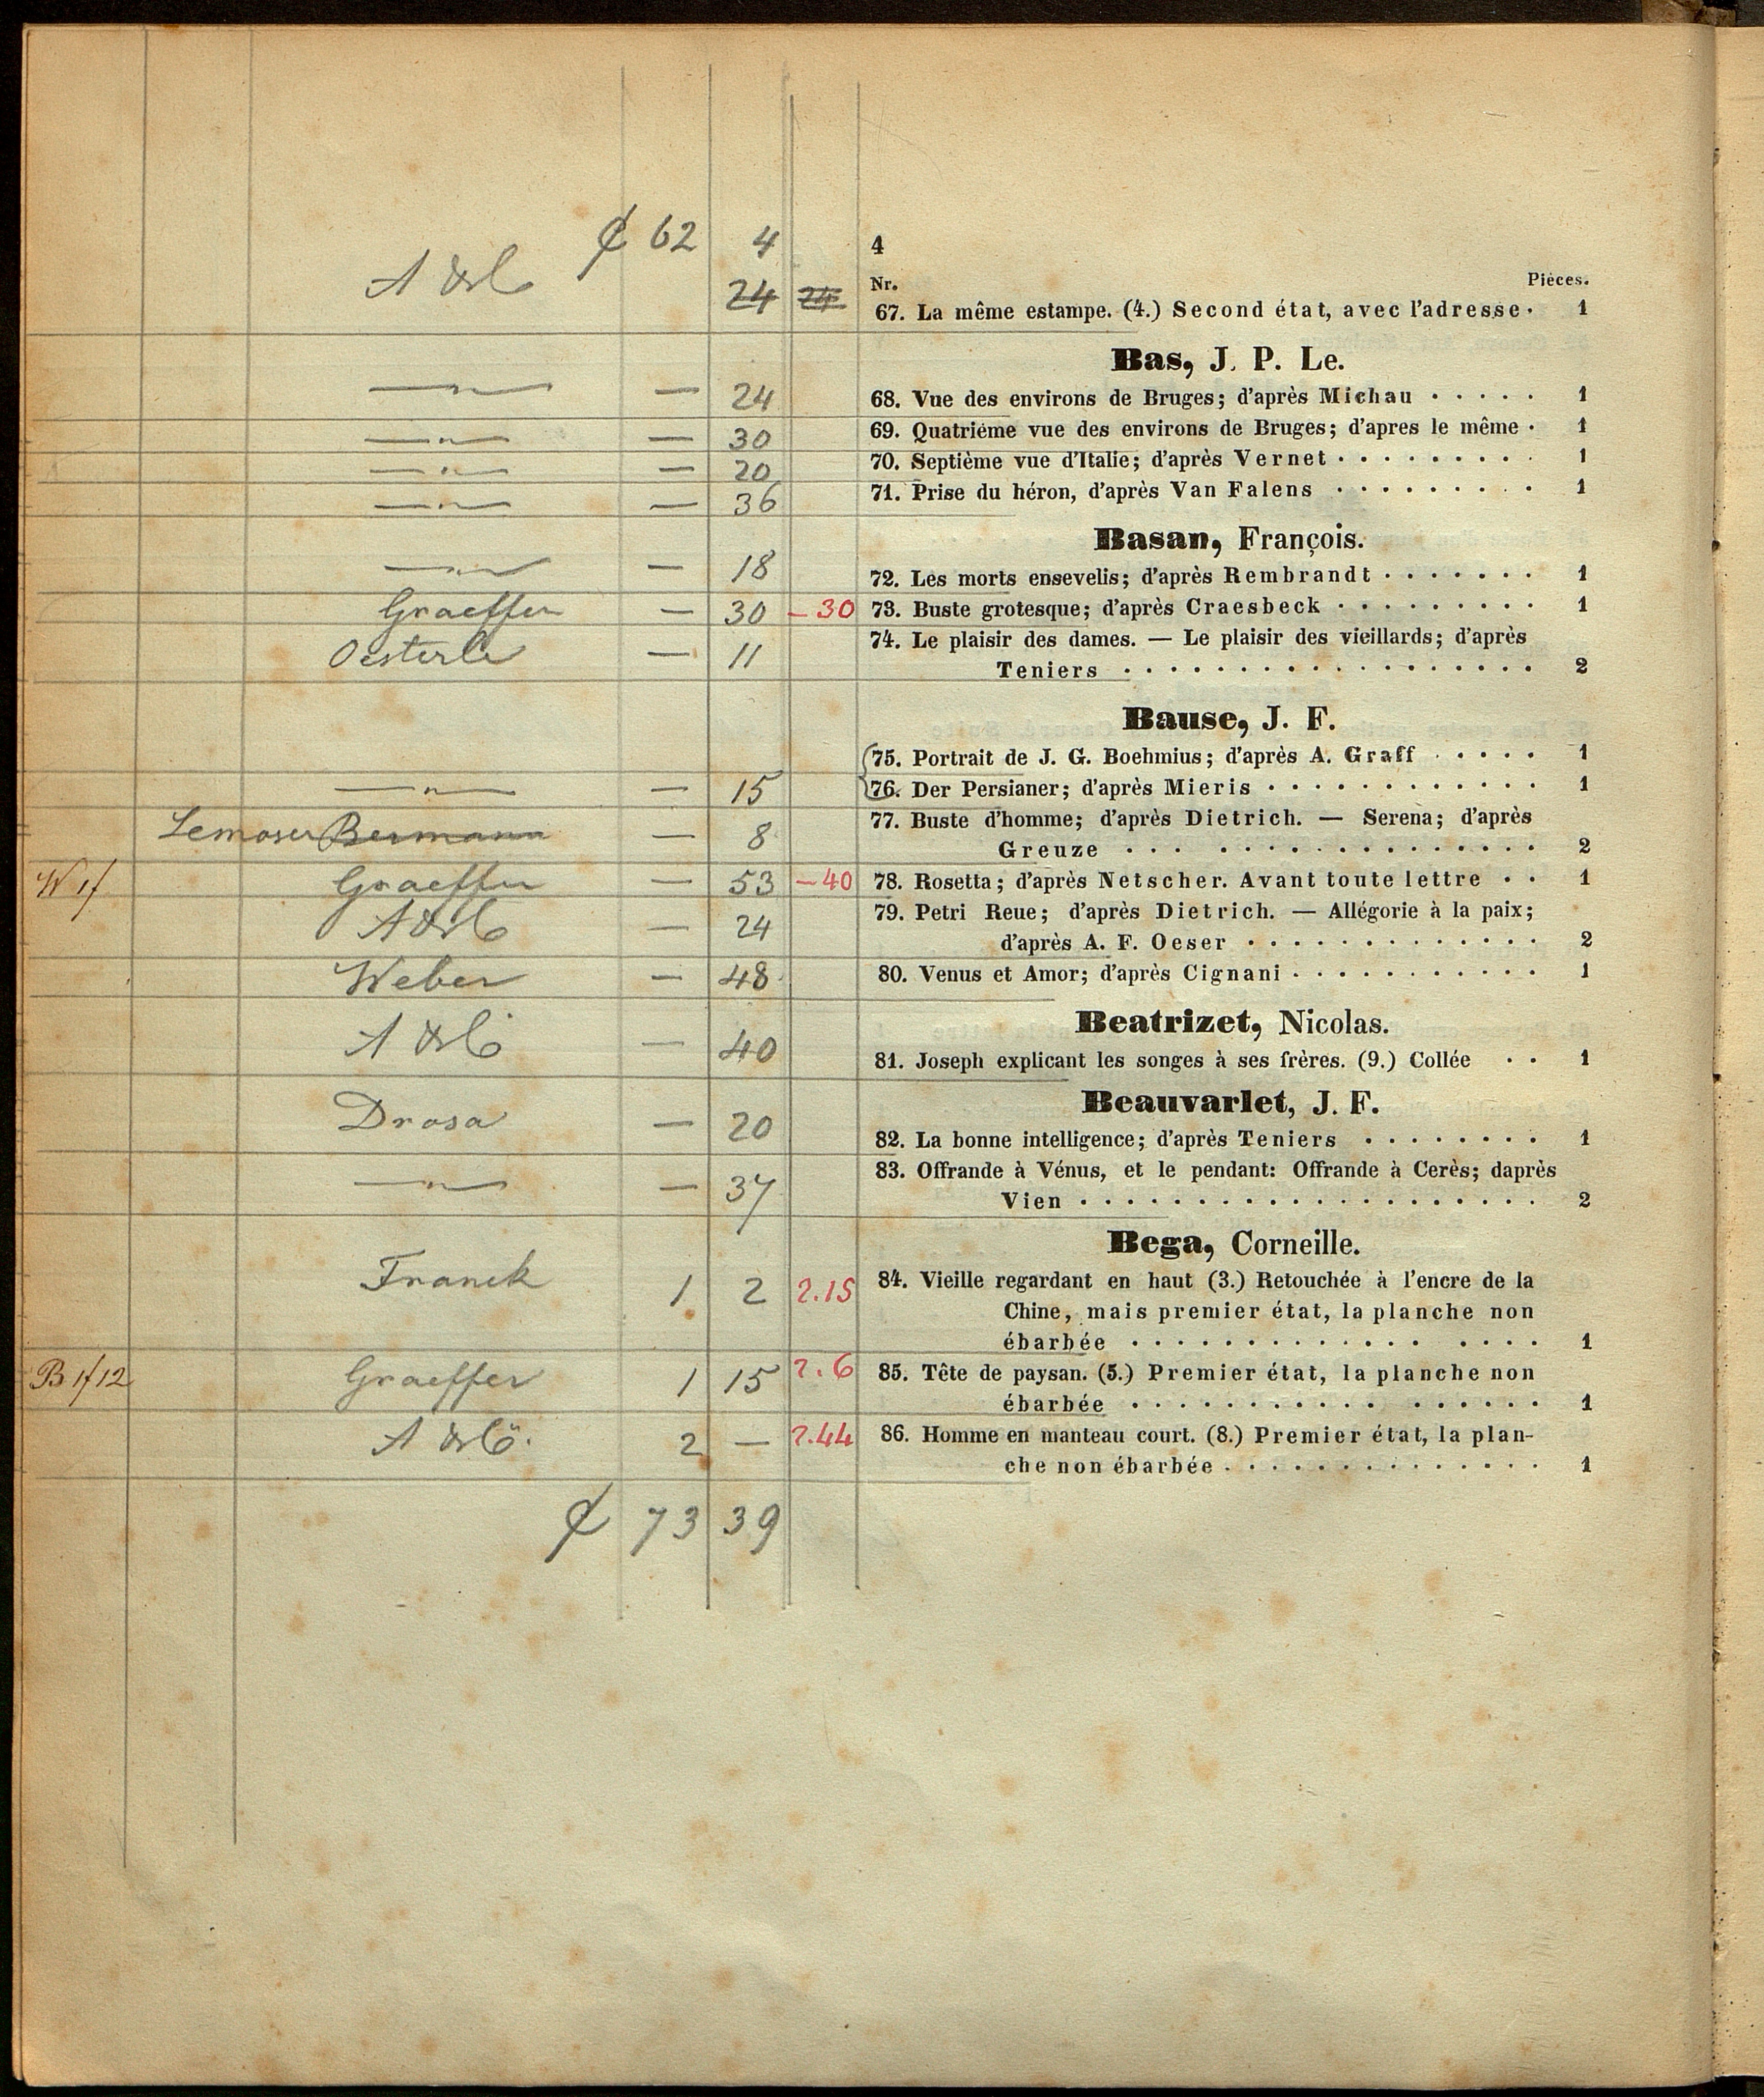 62 4
4
Nr. Pièces.
24 24 67. La même estampe. (4.) Second état, avec l'adresse · 1
Bas, J. P. Le.
— 24 68. Vue des environs de Bruges; d'après Michau · · · · · 1
— 30 69. Quatriéme vue des environs de Bruges; d'apres le même · 1
— 20 70. Septième vue d'Italie; d'après Vernet · · · · · · · · · 1
— 36 71. Prise du héron, d'après Van Falens · · · · · · · · · 1
Basan, François.
— 18 72. Les morts ensevelis; d'après Rembrandt · · · · · · · 1
Graeffer — 30 — 30 73. Buste grotesque; d'après Craesbeck · · · · · · · · · 1
Oesterle — 11 74. Le plaisir des dames. — Le plaisir des vieillards; d'après
Teniers · · · · · · · · · · · · · · · · · · 2
Bause, J. F.
75. Portrait de J. G. Boehmius; d'après A. Graff · · · · · 1
— 15 76. Der Persianer; d'après Mieris · · · · · · · · · · · · 1
Lemoser Bermann — 8 77. Buste d'homme; d'après Dietrich. — Serena; d'après
Greuze · · · · · · · · · · · · · · · · 2
Graeffer — 53 — 40 78. Rosetta; d'après Netscher. Avant toute lettre · · 1
— 24 79. Petri Reue; d'après Dietrich. — Allégorie à la paix;
d'après A. F. Oeser · · · · · · · · · · · · · 2
Weber — 48 80. Venus et Amor; d'après Cignani · · · · · · · · · · · 1
Beatrizet, Nicolas.
— 40 81. Joseph explicant les songes à ses frères. (9.) Collée · · 1
Beauvarlet, J. F.
Drosa — 20 82. La bonne intelligence; d'après Teniers · · · · · · · · 1
— 37 83. Offrande à Vénus, et le pendant: Offrande à Cerès; daprès
Vien · · · · · · · · · · · · · · · · · · · · 2
Bega, Corneille.
Franck 1 2 2.15 84. Vieille regardant en haut (3.) Retouchée à l'encre de la
Chine, mais premier état, la planche non
ébarbée · · · · · · · · · · · · · · · · · 1
Graeffer 1 15 2.6 85. Tête de paysan. (5.) Premier état, la planche non
ébarbée · · · · · · · · · · · · · · · · · 1
2 — 2.44 86. Homme en manteau court. (8.) Premier état, la plan-
che non ébarbée · · · · · · · · · · · · · · 1
73 39